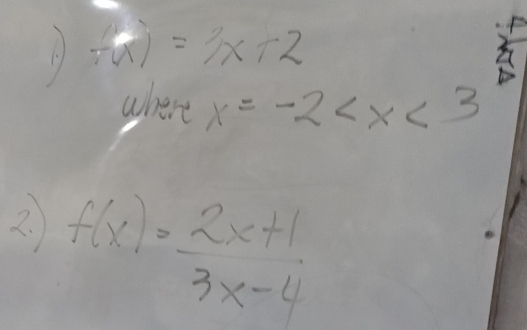 1.) f(x) = 3x+2
where x = -2 < x < 3
2.) f(x) = \frac{2x+1}{3x-4}